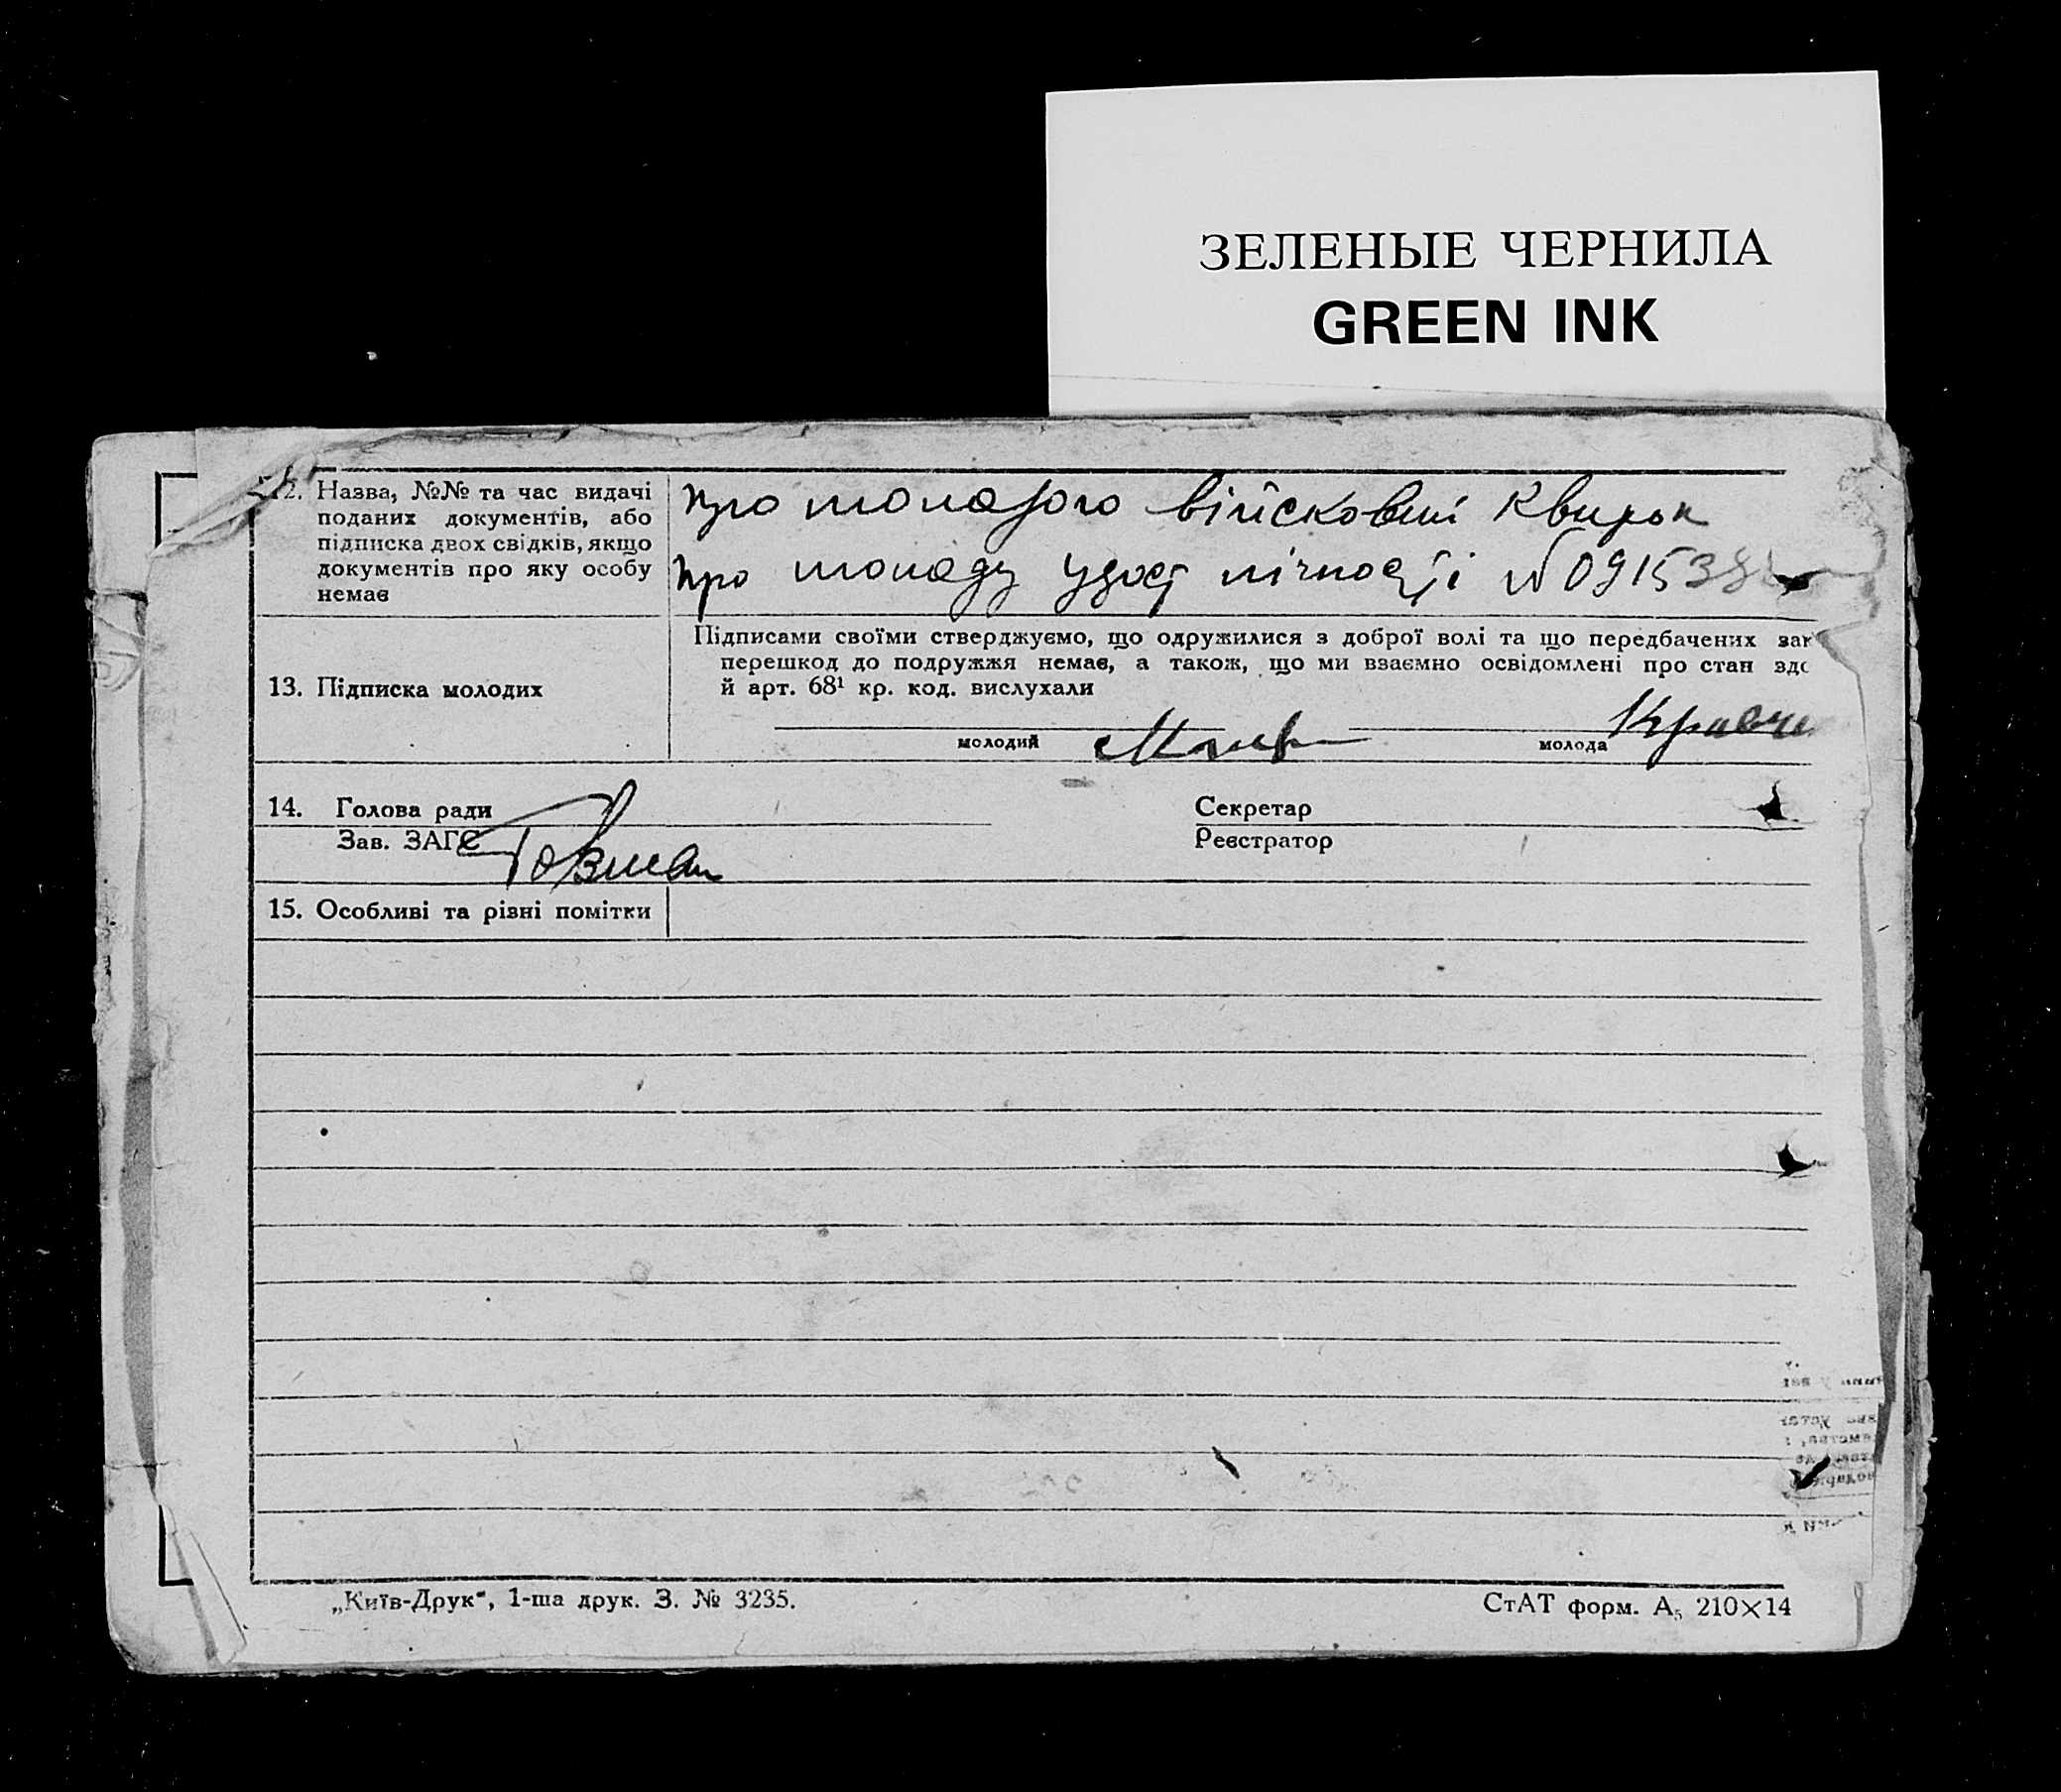 ЗЕЛЕНЫЕ ЧЕРНИЛА
GREEN INK
12. Назва, №№ та час видачі
поданих документів, або
підписка двох свідків, якщо
документів про яку особу
немає
про молодого війсковий квиток
про молоду удост лічності № 091538
13. Підписка молодих
Підписами своїми стверджуємо, що одружилися з доброї волі та що передбачених зак
перешкод до подружжя немає, а також, що ми взаємно освідомлені про стан здо
й арт. 68¹ кр. код. вислухали
молодий
молода Кравч
14. Голова ради
Секретар
Зав. ЗАГС
Реєстратор
15. Особливі та різні помітки
„Київ-Друк“, 1-ша друк. З. № 3235.
СтАТ форм. А₅ 210×14